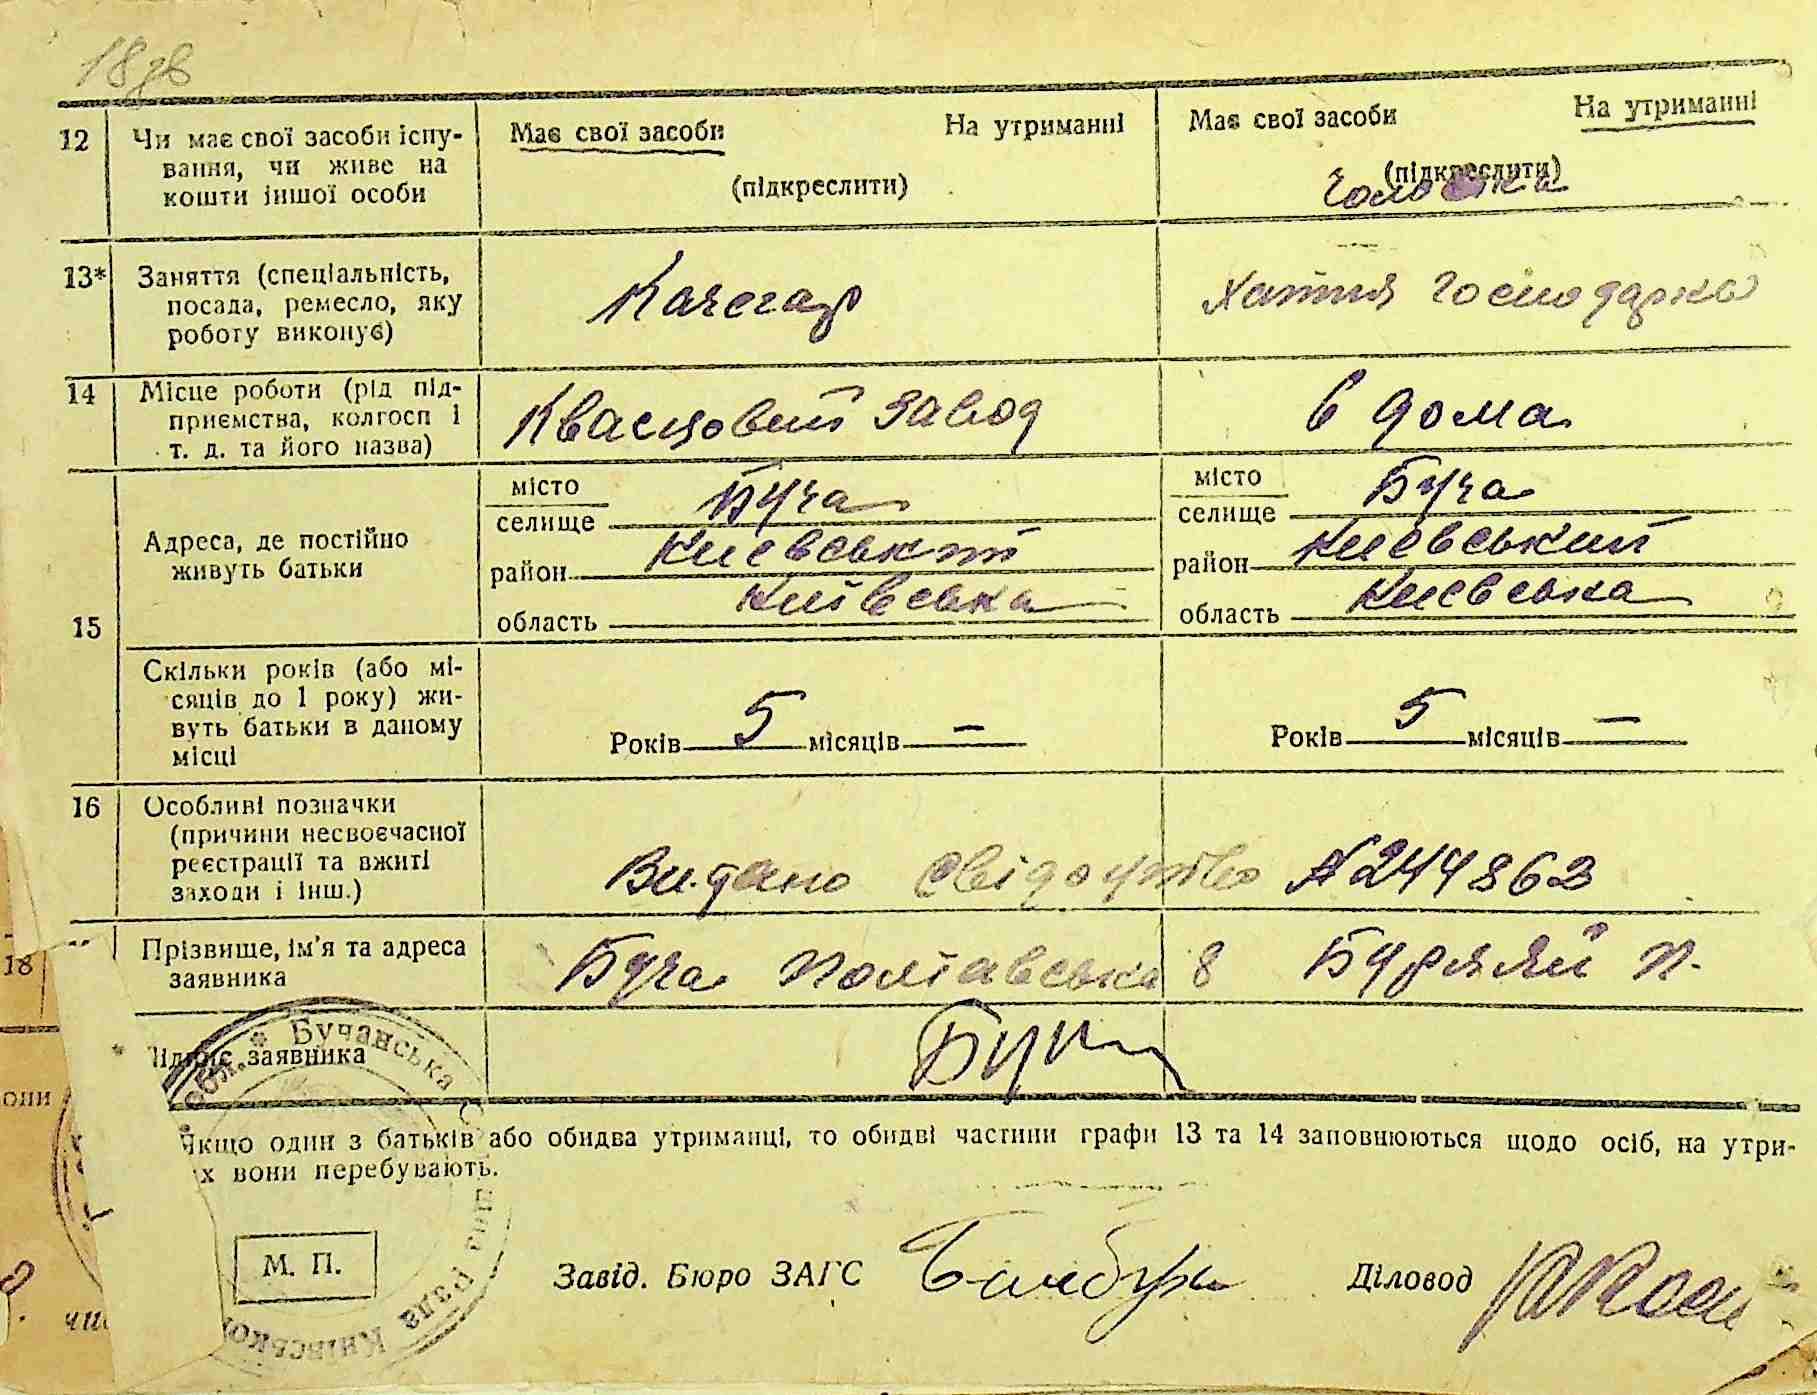 18зв
12 Чи має свої засоби існу- Має свої засоби На утриманні Має свої засоби На утриманні
вання, чи живе на (підкреслити) (підкреслити)
кошти іншої особи Чоловіка
13* Заняття (спеціальність, Качегар Хатня Господарка
посада, ремесло, яку
роботу виконує)
14 Місце роботи (рід під- Квасцовий Завод в дома
приємства, колгосп і
т. д. та його назва)
15 Адреса, де постійно живуть батьки
місто Буча місто Буча
селище селище
район Києвський район Києвський
область Київська область Києвська
Скільки років (або мі-
сяців до 1 року) жи-
вуть батьки в даному Років 5 місяців — Років 5 місяців —
місці
16 Особливі позначки
(причини несвоєчасної
реєстрації та вжиті Видано свідоцтво №244863
заходи і інш.)
18 Прізвище, ім'я та адреса Буча Полтавська 8 П.
заявника
заявника
обл. * Бучанська
Рада Київської
они
Якщо один з батьків або обидва утриманці, то обидві частини графи 13 та 14 заповнюються щодо осіб, на утри-
х вони перебувають.
М. П.
Завід. Бюро ЗАГС Діловод